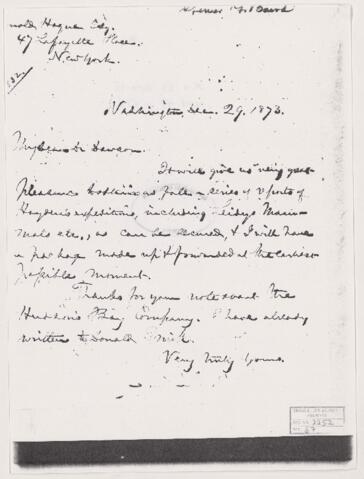 Spencer F. Baird
nold Hague Esq.
47 Lafayette Place.
New York.
Washington, Dec. 29, 1873.
My dear Dr Dawson.
It will give us very great
pleasure to obtain as full a series of reports of
Hayden's expeditions, including Leidy's Mam-
mals etc., as can be secured, & I will have
a package made up & forwarded at the earliest
possible moment.
Thanks for your note about the
Hudson's Bay Company. I have already
written to Donald
Very truly yours.